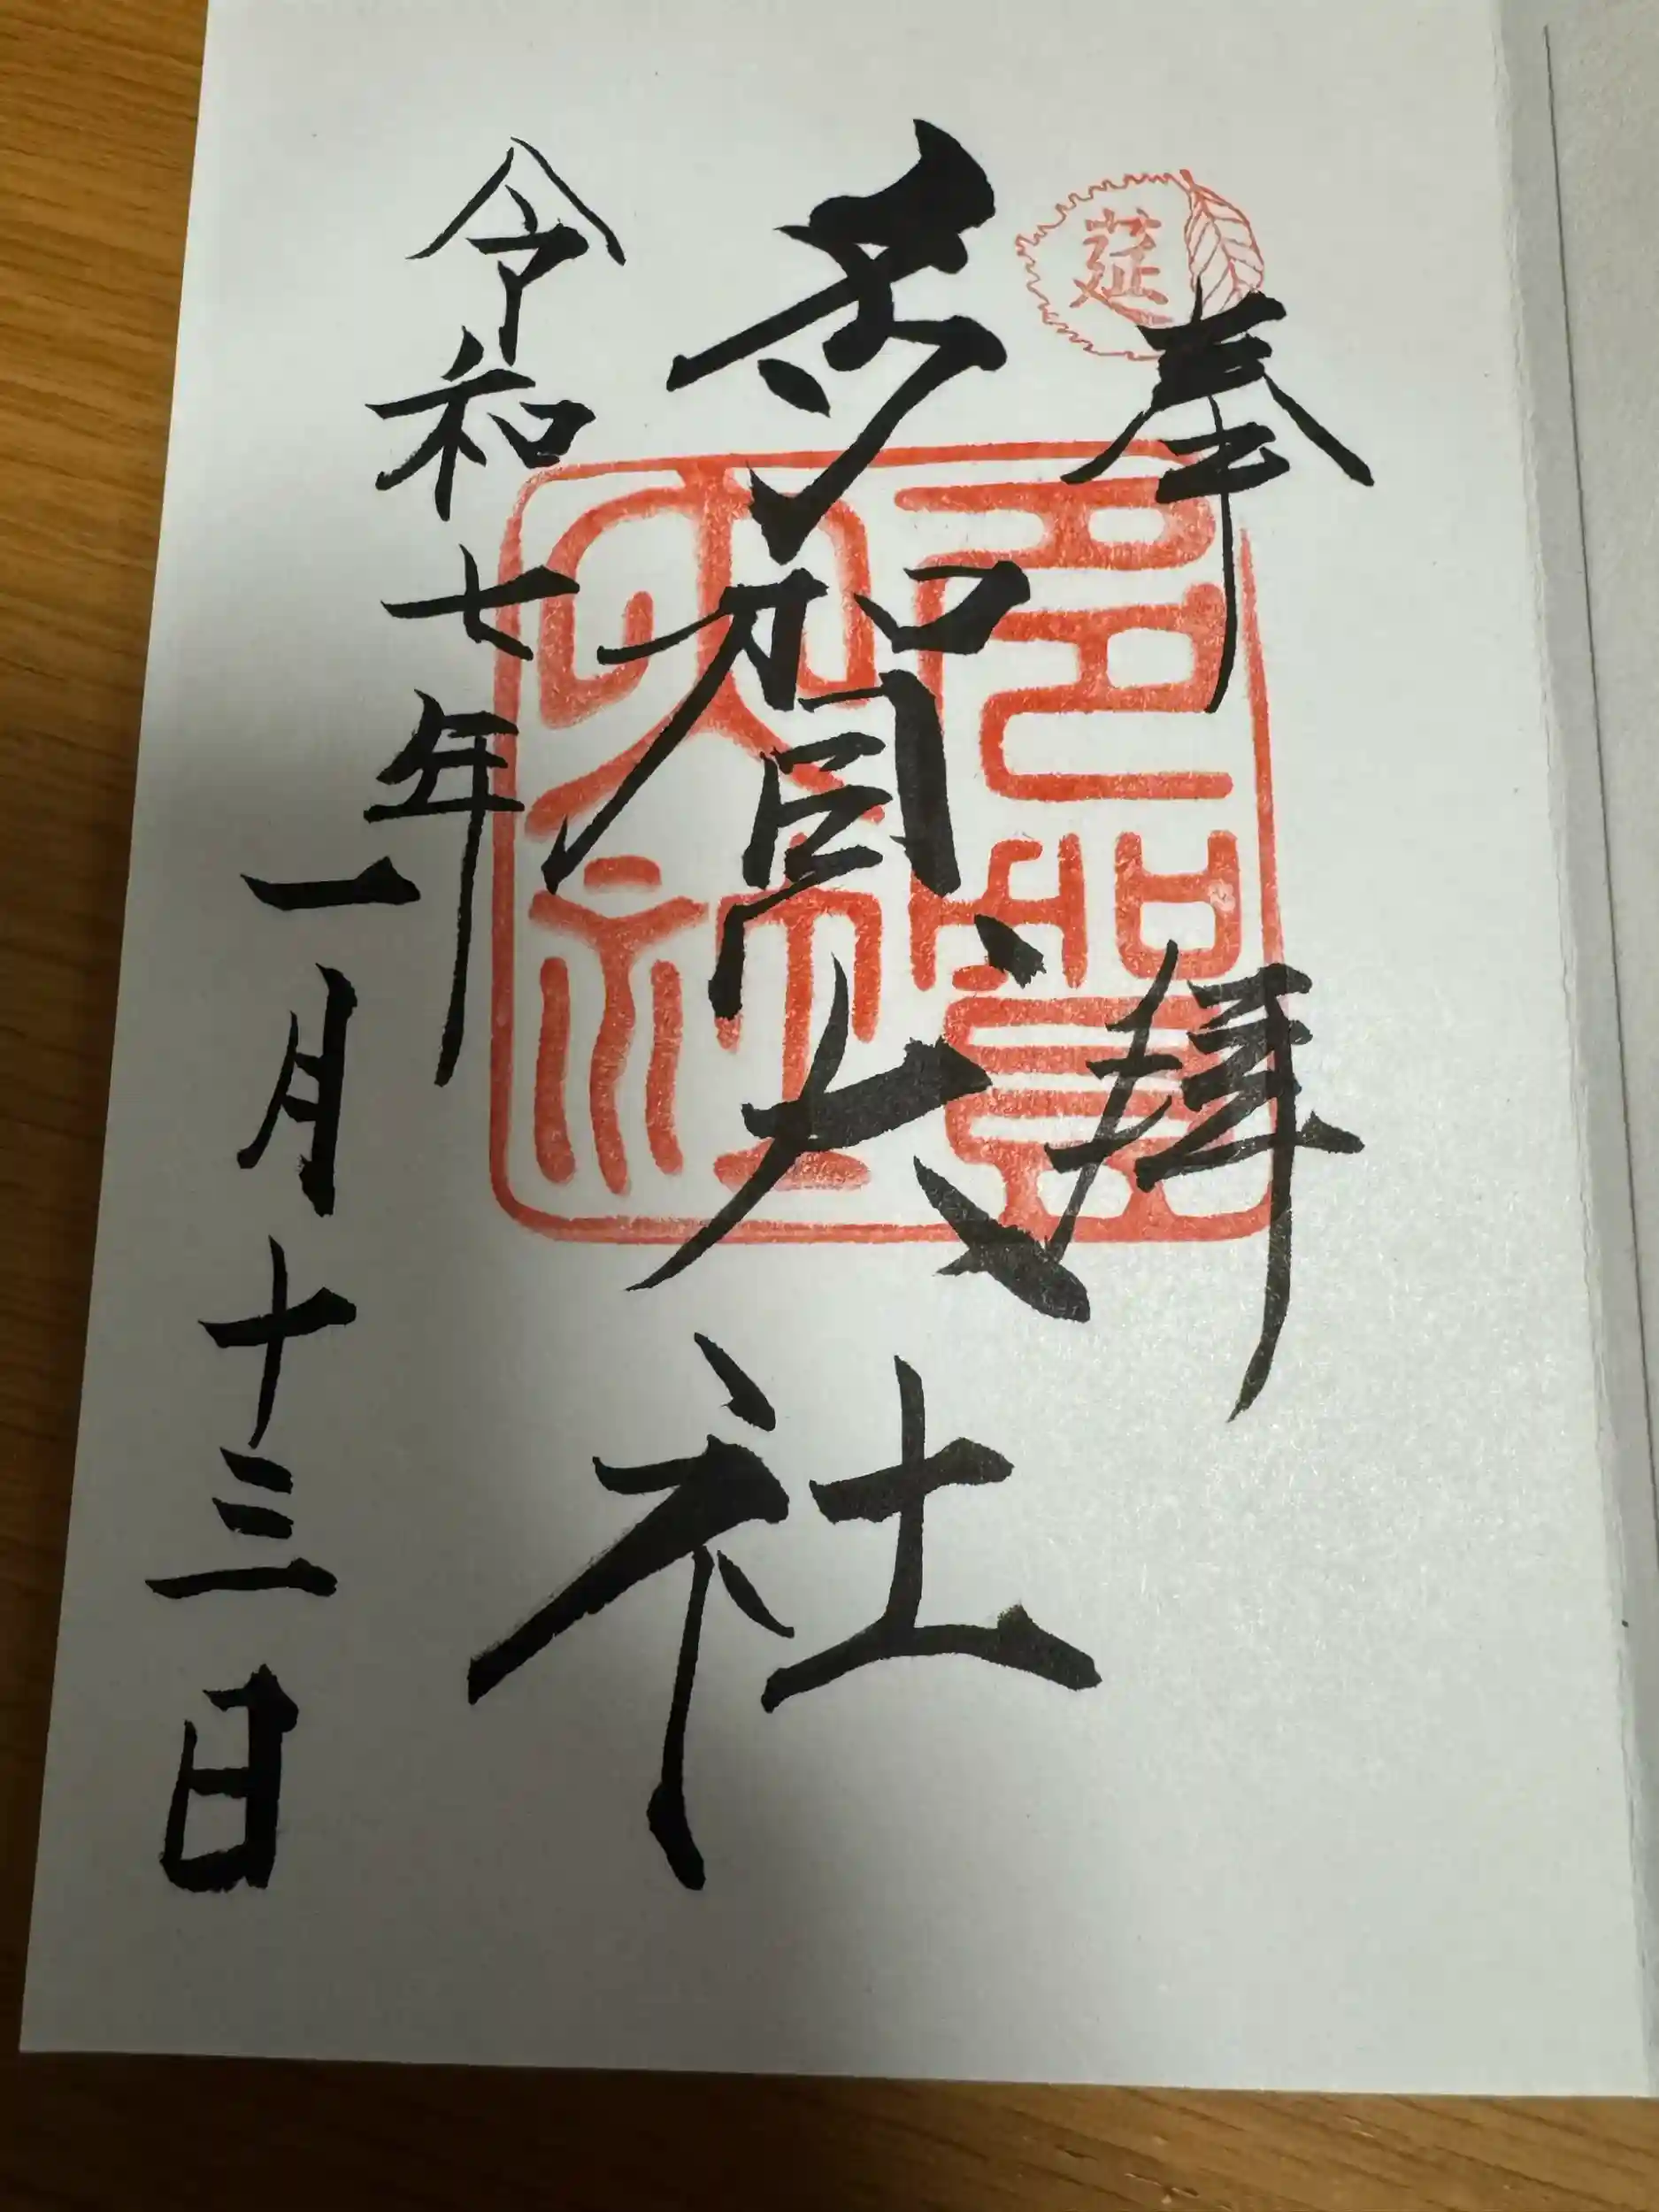 奉拝
莚
多賀大社
多賀大社
令和七年一月十三日